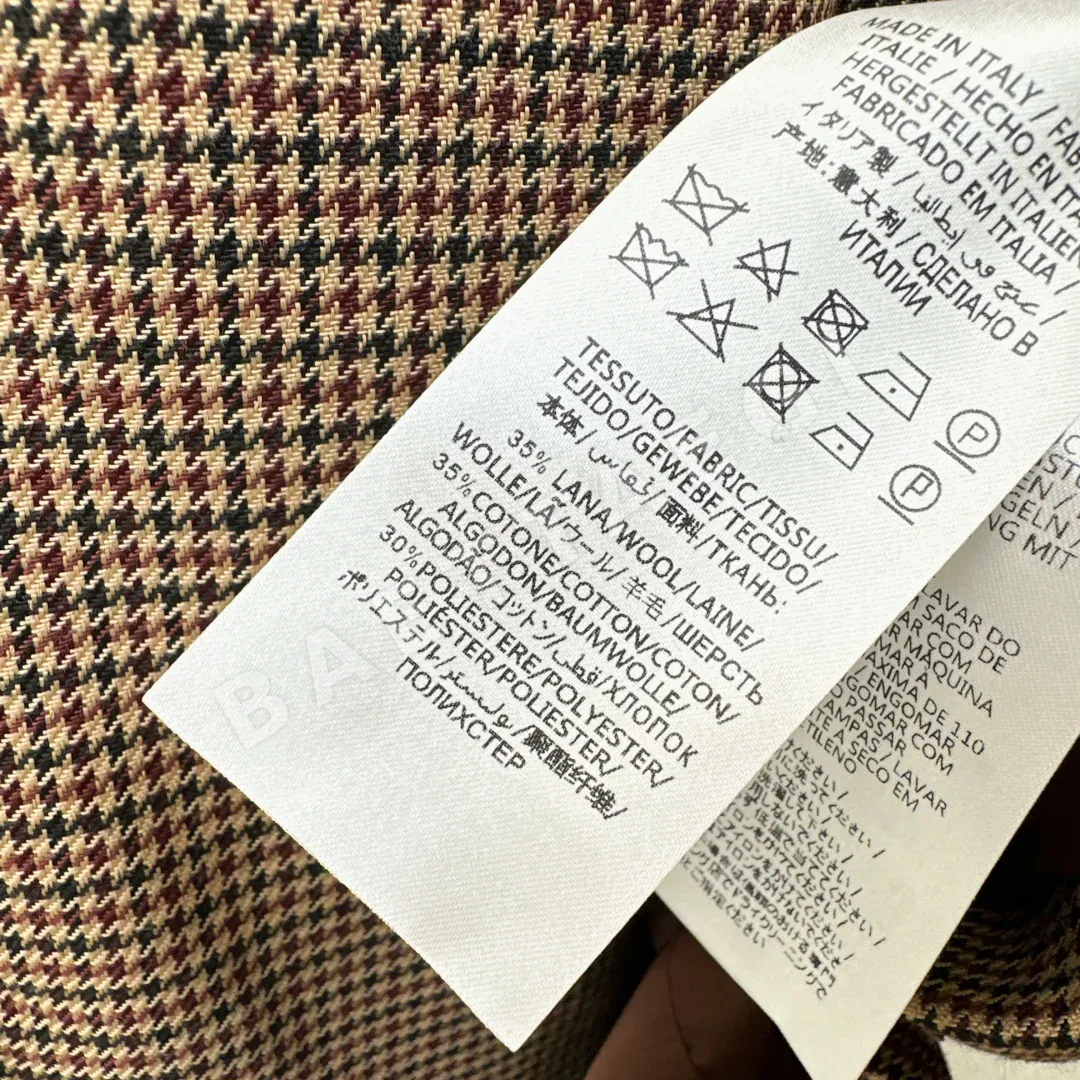 MADE IN ITALY / FAB
ITALIE / HECHO EN ITA
HERGESTELLT IN ITALIEN
FABRICADO EM ITALIA /
イタリア製 / صنع في إيطاليا /
产地:意大利 / СДЕЛАНО В
ИТАЛИИ
P
P
TESSUTO/FABRIC/TISSU/
TEJIDO/GEWEBE/TECIDO/
本体/قماش/面料/ТКАНЬ:
35% LANA/WOOL/LAINE/
WOLLE/LÃ/ウール/羊毛/ШЕРСТЬ
35%COTONE/COTTON/COTON/
ALGODON/BAUMWOLLE/
ALGODÃO/コットン/قطن/ХЛОПОК
30%POLIESTERE/POLYESTER/
POLIÉSTER/POLIESTER/
ポリエステル/بوليستر/聚酯纤维/
ПОЛИХСТЕР
EN /
GELN /
NG MIT
LAVAR DO
M SACO DE
AR COM
MAR MÁQUINA
ÁXIMA DE 110
O / ENGOMAR
OGOMAR COM
AMPASSAR COM
TE A SECO EM
TILENO
けください /
に洗ってください /
いください /
用しないで下さい /
ず、低温で当ててください /
BA